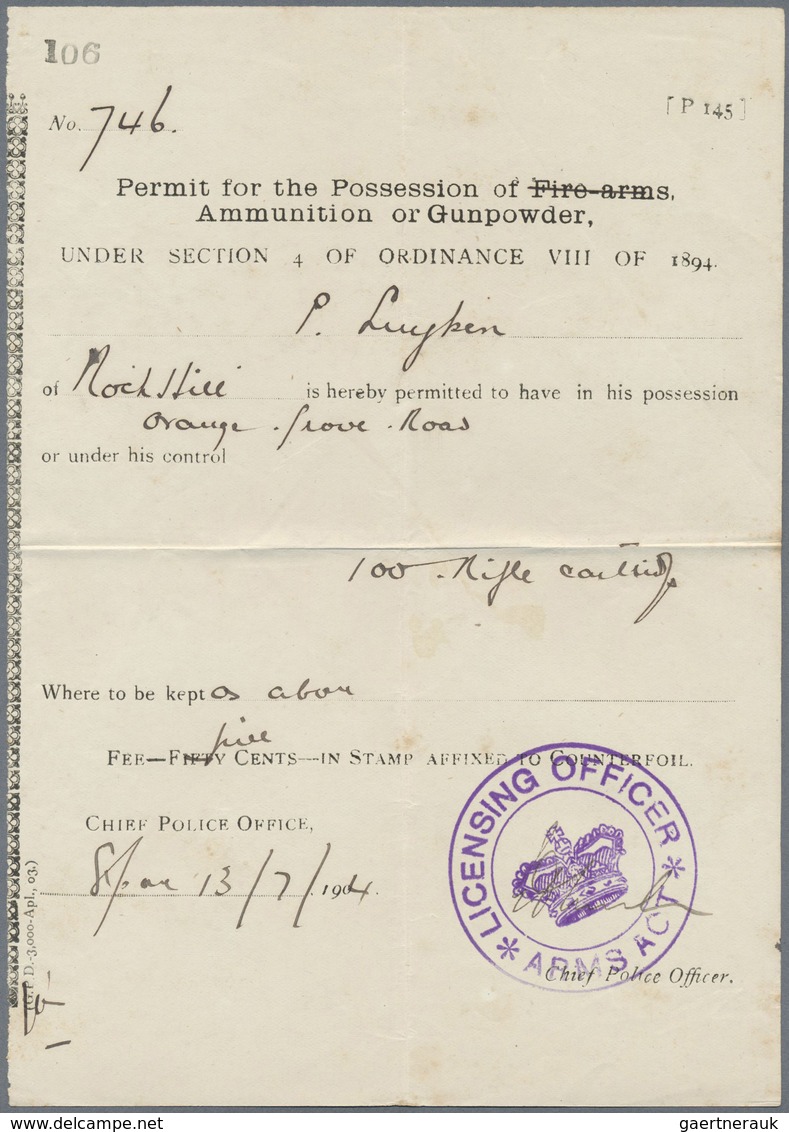 106
No. 746.
[P 145]
Permit for the Possession of Fire-arms,
Ammunition or Gunpowder,
UNDER SECTION 4 OF ORDINANCE VIII OF 1894.
P. Luyken
of Rock Hill is hereby permitted to have in his possession
Orange Grove Road
or under his control
100 Rifle
Where to be kept as above
FEE—FIFTY CENTS—IN STAMP AFFIXED TO COUNTERFOIL.
CHIEF POLICE OFFICE,
13/7/1904.
LICENSING OFFICER
* ARMS ACT *
Chief Police Officer.
D.-3,000-Apl., 03.)
gaertnerauk